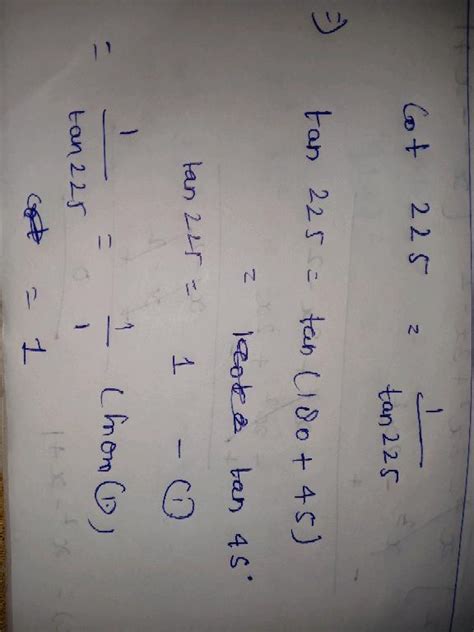 cot 225 = 1/tan 225
⇒ tan 225 = tan (180 + 45)
= tan 45°
tan 225 = 1 - (1)
= 1/tan 225 = 1/1 (from (1))
= 1